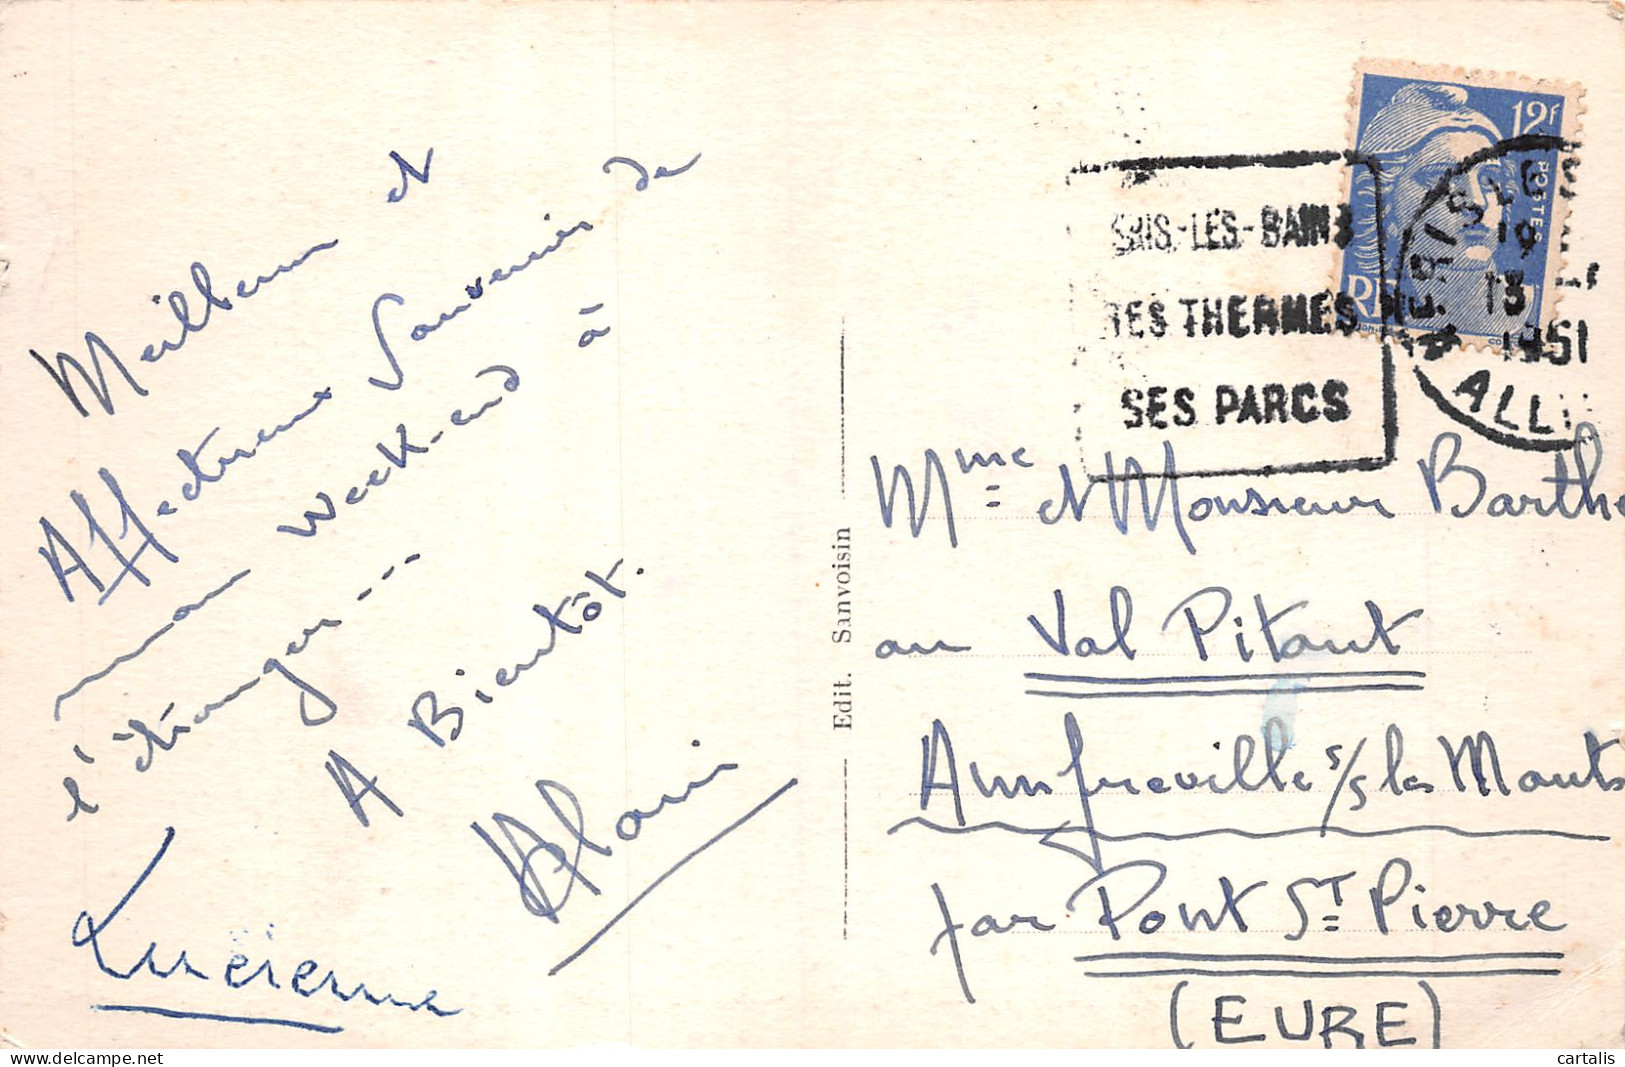 Meilleurs et
Affectueux Souvenirs de
mon week-end à
l'étranger...
A Bientôt.
Alain
Lucienne
Edit. Sanvoisin
12F
POSTES
RF
LES-BAINS
SES THERMES
SES PARCS
19
13
1951
ALLI
Mme et Monsieur Barthe
au Val Pitant
Amfreville s/s les Monts
par Pont St Pierre
(EURE)
cartalis